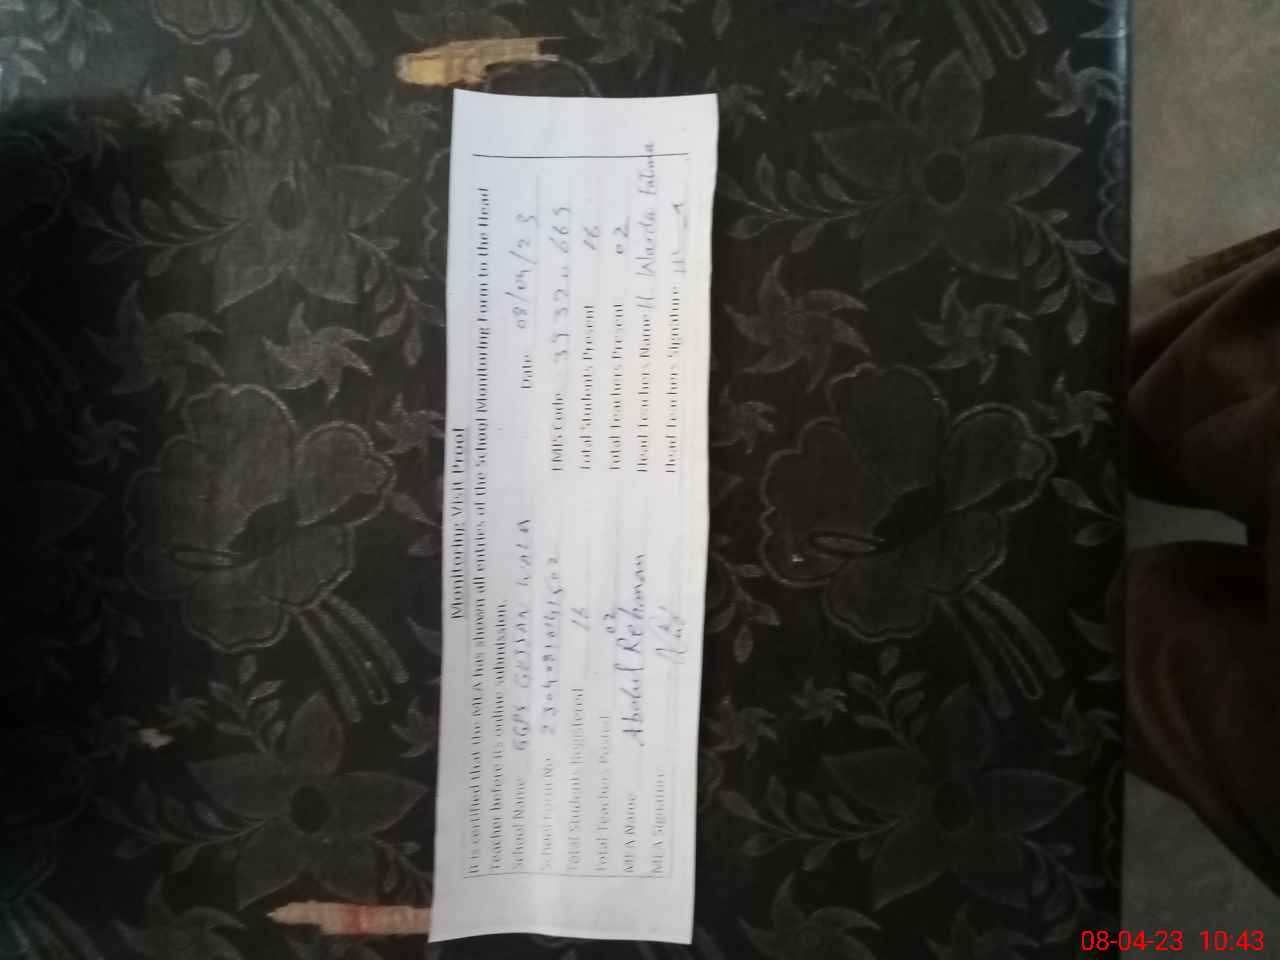 Monitoring Visit Proof
It is certified that the MEA has shown all entries of the School Monitoring Form to the Head
Teacher before its online submission.
School Name GGPS Date 08/04/23
School Form No EMIS Code
Total Students Registered 16 Total Students Present 16
Total Teachers Posted 02 Total Teachers Present 02
MEA Name Abdul Rehman Head Teachers Name H. Warda Fatma
MEA Signature Head Teachers Signature
08-04-23 10:43